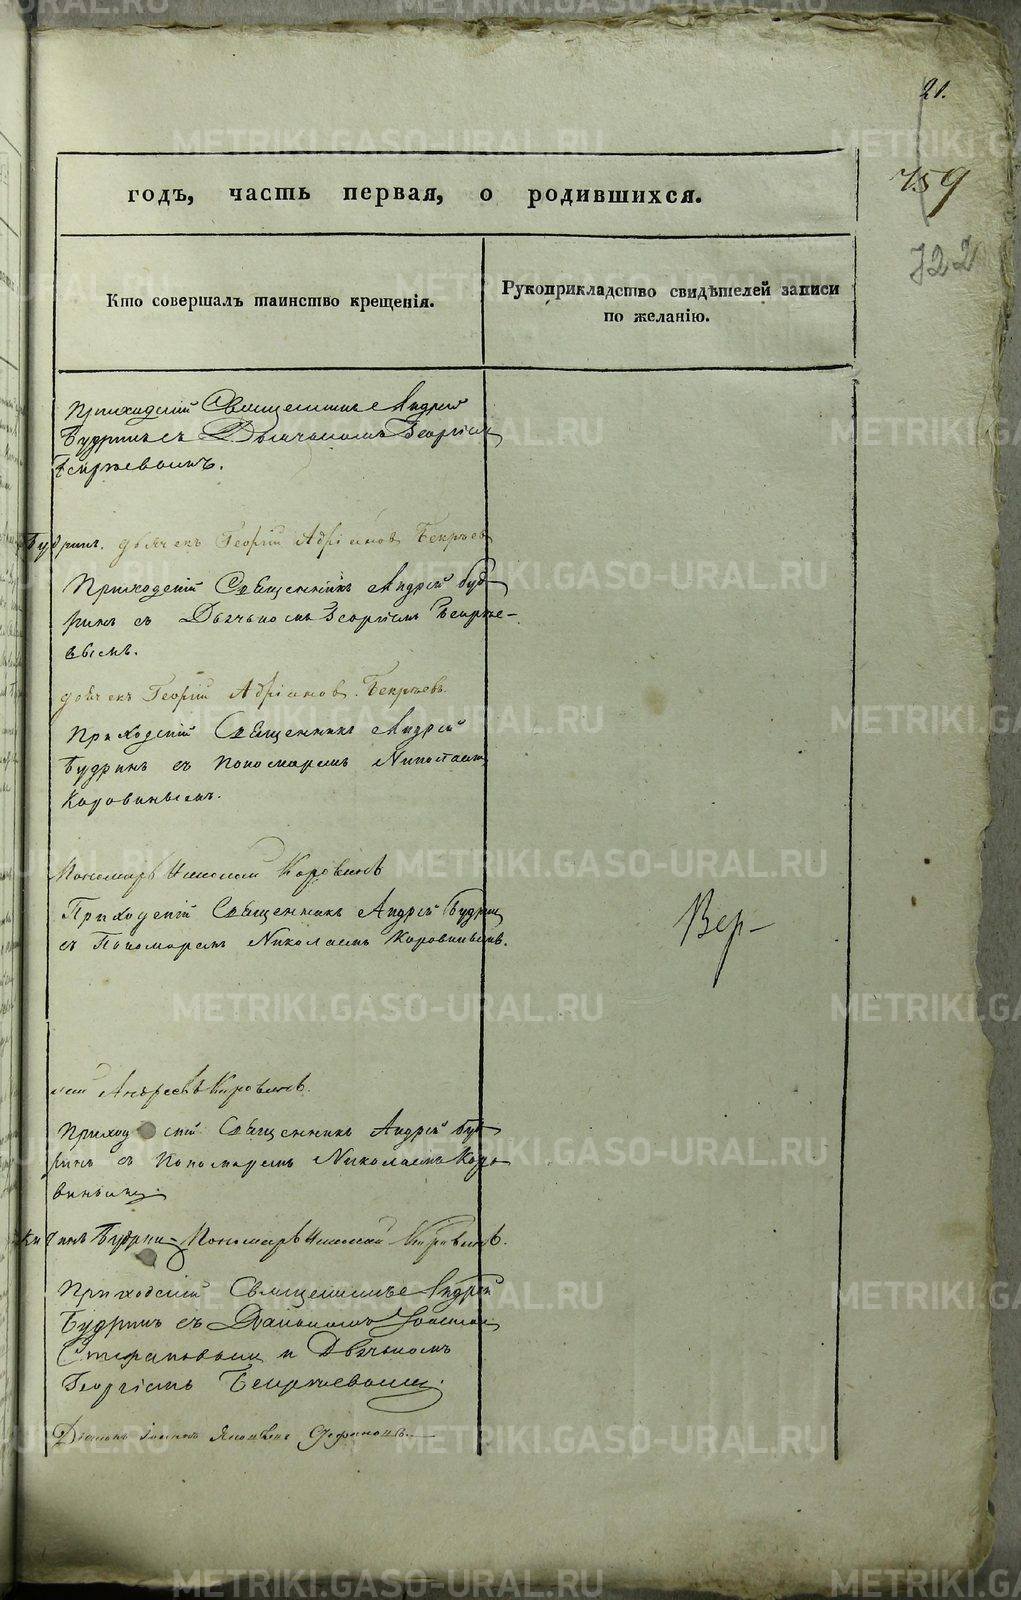 21.
759
722
годъ, часть первая, о родившихся.
Кто совершалъ таинство крещенія.
Рукоприкладство свидѣтелей записи
по желанію.
Приходскій Священникъ Андрей
Будринъ съ Дьячкомъ Георгіем
Бекряевымъ.
Будрин. дьячекъ Георгій Адріановъ Бекряев
Приходскій Священникъ Андрей Буд
ринъ съ Дьячкомъ Георгіемъ Бекряе-
вымъ.
дьячекъ Георгій Адріановъ Бекряевъ.
Приходскій Священникъ Андрей
Будринъ съ Пономаремъ Николаем
Коровинымъ.
Пономарь Николай Коровинъ
Приходскій Священникъ Андрей Будрин
съ Пономаремъ Николаемъ Коровинымъ.
Вер-
лай Андреевъ Коровинъ.
Приход скій Священникъ Андрей Буд
ринъ съ Пономаремъ Николаемъ Коро
винымъ.
Будрин Пономарь Николай Коровинъ.
Приходскій Священникъ Андрей
Будринъ съ Діакономъ Іоанном
Стефановымъ и Дьячкомъ
Георгіемъ Бекряевымъ.
Діаконъ Іоаннъ Яковлевъ Стефановъ.
METRIKI.GASO-URAL.RU